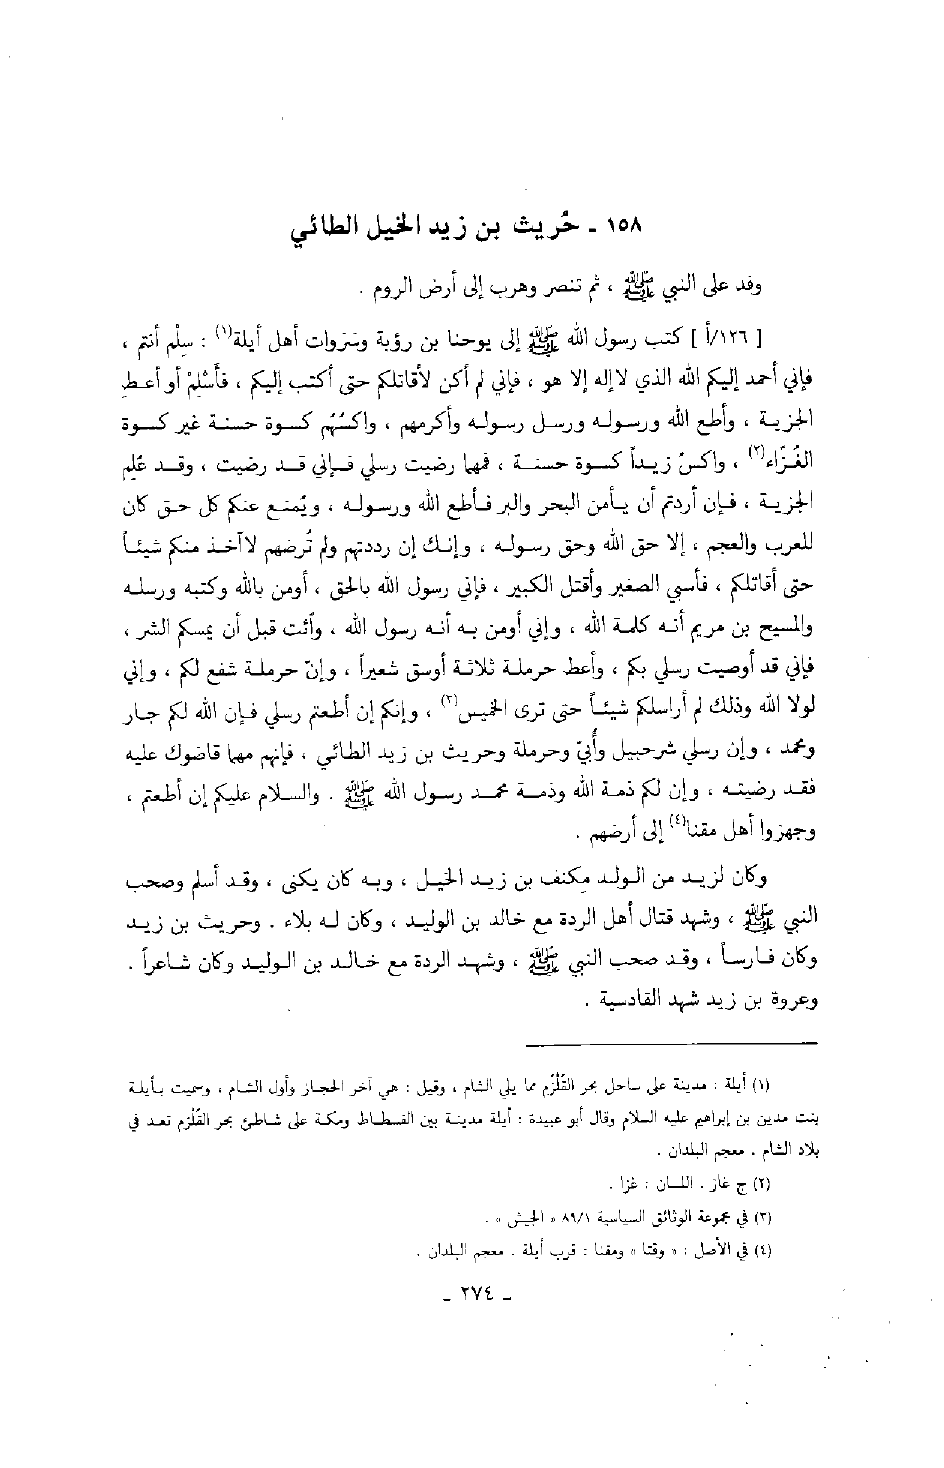 ١٥٨ - حُريث بن زيد الخيل الطائي
وفد على النبي ﷺ ، ثم تنصر وهرب إلى أرض الروم .
[ ١٢٦/أ ] كتب رسول الله ﷺ إلى يوحنا بن رؤبة وسَرَوات أهل أيلة(١) : سِلْم أنتم ،
فإني أحمد إليكم الله الذي لا إله إلا هو ، فإني لم أكن لأقاتلكم حتى أكتب إليكم ، فأَسْلِمْ أو أعط
الجزية ، وأطع الله ورسوله ورسل رسوله وأكرمهم ، واكسُهم كسوة حسنة غير كسوة
الغُزّاء(٢) ، واكسُ زيداً كسوة حسنة ، فمهما رضيت رسلي فإني قد رضيت ، وقد عُلم
الجزية ، فإن أردتم أن يأمن البحر والبر فأطع الله ورسوله ، ويُمنع عنكم كل حق كان
للعرب والعجم ، إلا حق الله وحق رسوله ، وإنك إن رددتهم ولم تُرضهم لاآخذ منكم شيئاً
حتى أقاتلكم ، فأسبي الصغير وأقتل الكبير ، فإني رسول الله بالحق ، أومن بالله وكتبه ورسله
والمسيح بن مريم أنه كلمة الله ، وإني أومن به أنه رسول الله ، وأئت قبل أن يمسكم الشر ،
فإني قد أوصيت رسلي بكم ، وأعط حرملة ثلاثة أوسق شعيراً ، وإنّ حرملة شفع لكم ، وإني
لولا الله وذلك لم أراسلكم شيئاً حتى ترى الخميس(٣) ، وإنكم إن أطعتم رسلي فإن الله لكم جار
ومحمد ، وإن رسلي شرحبيل وأُبيّ وحرملة وحريث بن زيد الطائي ، فإنهم مهما قاضوك عليه
فقد رضيته ، وإن لكم ذمة الله وذمة محمد رسول الله ﷺ . والسلام عليكم إن أطعتم ،
وجهزوا أهل مقنا(٤) إلى أرضهم .
وكان لزيد من الولد مكنف بن زيد الخيل ، وبه كان يكنى ، وقد أسلم وصحب
النبي ﷺ ، وشهد قتال أهل الردة مع خالد بن الوليد ، وكان له بلاء . وحريث بن زيد
وكان فارساً ، وقد صحب النبي ﷺ ، وشهد الردة مع خالد بن الوليد وكان شاعراً .
وعروة بن زيد شهد القادسية .
(١) أيلة : مدينة على ساحل بحر القُلْزُم مما يلي الشام ، وقيل : هي آخر الحجاز وأول الشام ، وسميت بأيلة
بنت مدين بن إبراهيم عليه السلام وقال أبو عبيدة : أيلة مدينة بين الفسطاط ومكة على شاطئ بحر القُلْزم تعد في
بلاد الشام . معجم البلدان .
(٢) ج غاز . اللسان : غزا .
(٣) في مجموعة الوثائق السياسية ٨٩/١ « الجيش » .
(٤) في الأصل : « وقتا » ومقنا : قرب أيلة . معجم البلدان .
- ٢٧٤ -